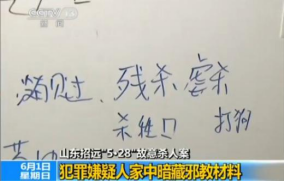 CCTV
新闻
残杀、虐杀
杀牲口 打狗
6月1日
星期日
山东招远“5·28”故意杀人案
犯罪嫌疑人家中暗藏邪教材料